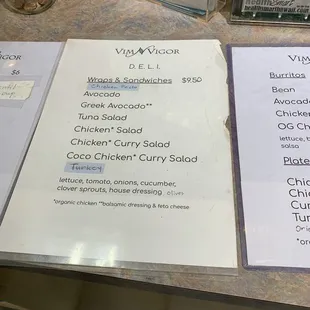 $6
VIM & VIGOR
D.E.L.I.
Wraps & Sandwiches $9.50
Chicken Pesto
Avocado
Greek Avocado**
Tuna Salad
Chicken* Salad
Chicken* Curry Salad
Coco Chicken* Curry Salad
Turkey
lettuce, tomato, onions, cucumber,
clover sprouts, house dressing,
*organic chicken **balsamic dressing & feta cheese
VIM
Burritos
Bean
Avocado
Chicken
OG Ch
lettuce, t
salsa
Plate
Chic
Chic
Cur
Tur